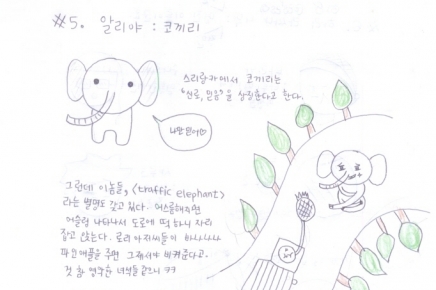 #5. 알리야 : 코끼리
스리랑카에서 코끼리는
"신뢰, 믿음"을 상징한다고 한다.
나만 믿어♡
그런데 이놈들, <traffic elephant>
라는 별명도 갖고 있다. 어스름해지면
어슬렁 나타나서 도로에 떡하니 자리
잡고 앉는다. 로리 아저씨들이 바나나나
파인애플을 주면 그제서야 비켜준다고.
것 참 영악한 녀석들 ㅋㅋ